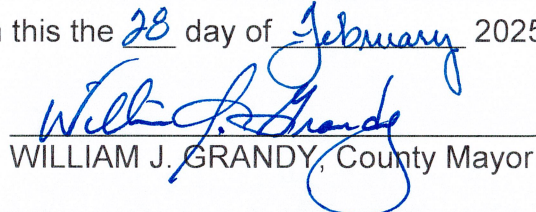 n this the 28 day of February 2025
William J. Grandy
WILLIAM J. GRANDY, County Mayor